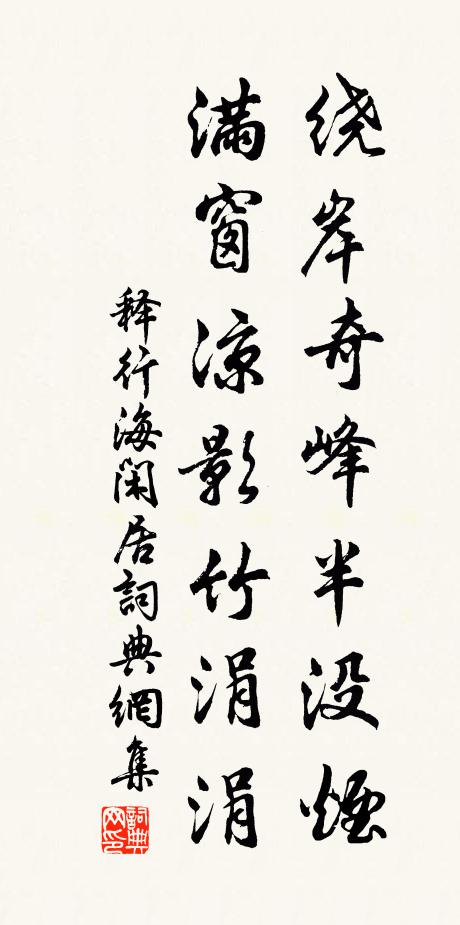 绕岸奇峰半没煙
满窗凉影竹涓涓
释行海闲居詞典網集
詞典网印